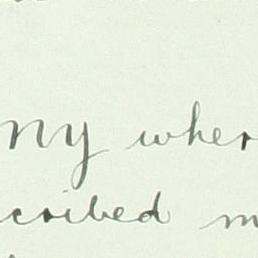 ny wher
cribed m